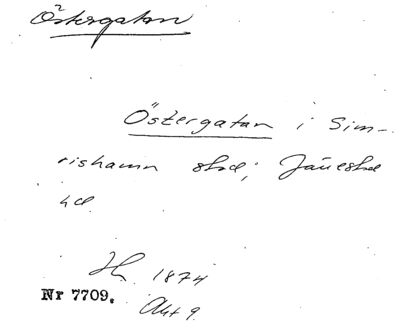 Östergatan
Östergatan i Sim-
rishamn stad; Järrestad
hd.
1874
Nr 7709. Akt 9.